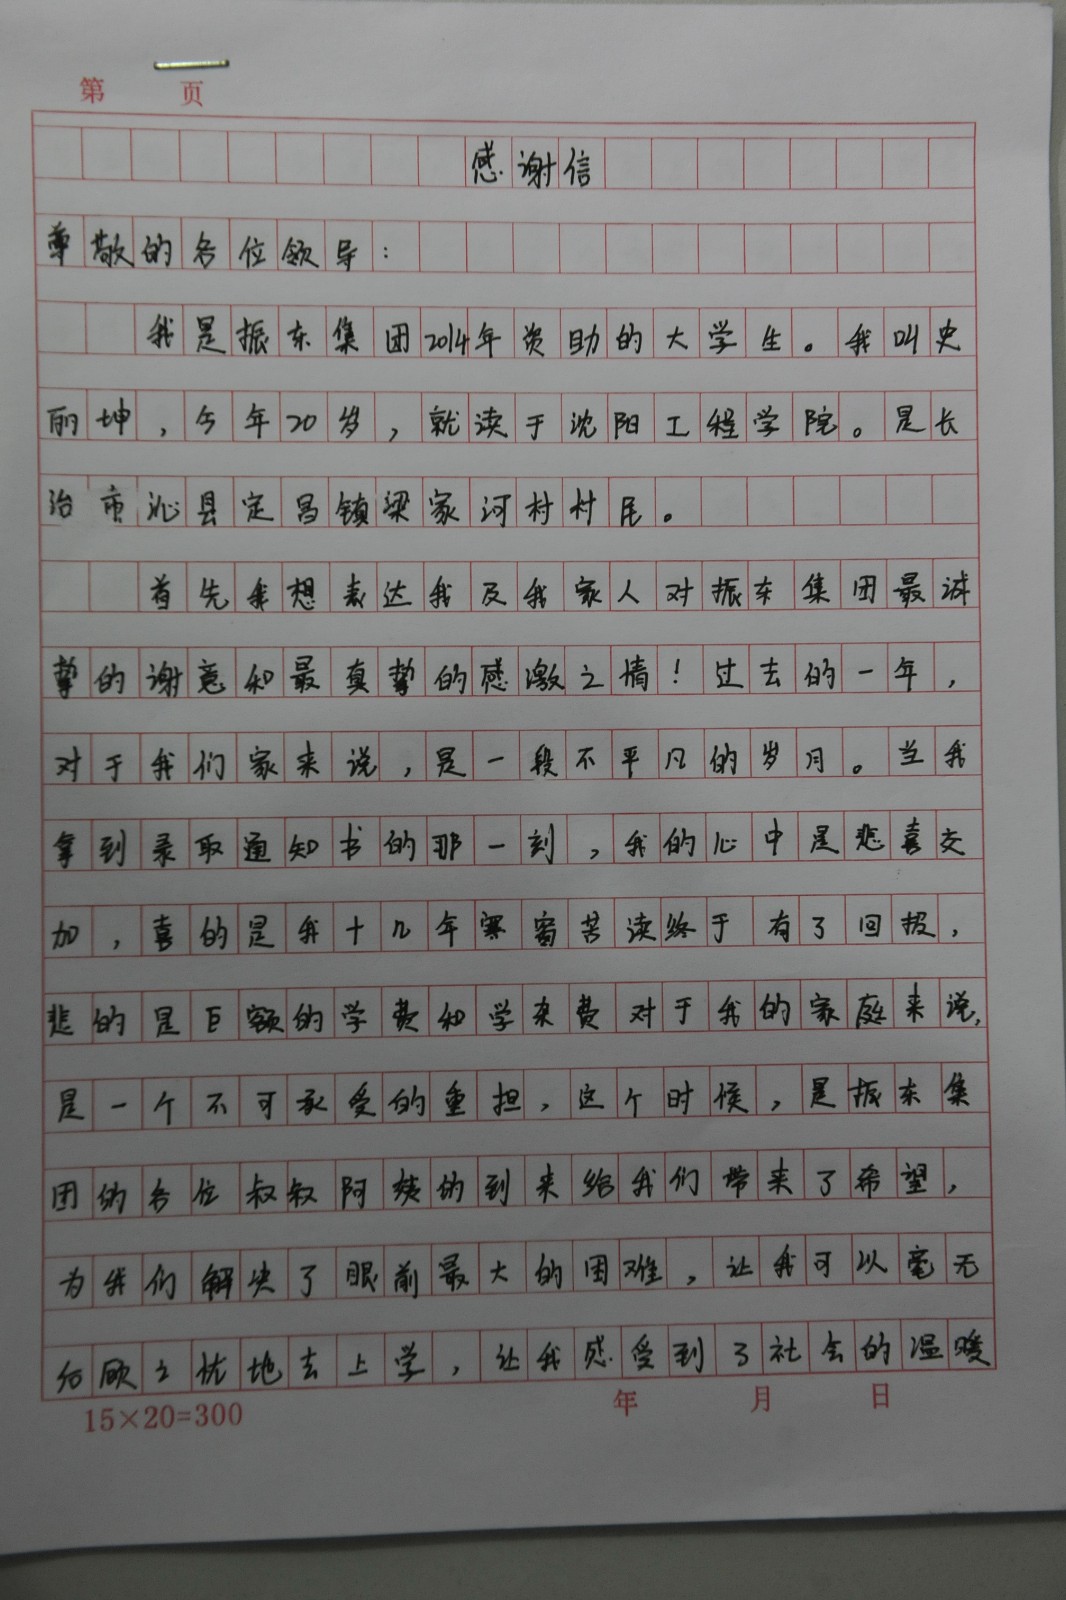 第 页
感谢信
尊敬的各位领导：
我是振东集团2014年资助的大学生。我叫史
丽坤，今年20岁，就读于沈阳工程学院。是长
治市沁县定昌镇梁家河村村民。
首先我想表达我及我家人对振东集团最诚
挚的谢意和最真挚的感激之情！过去的一年，
对于我们家来说，是一段不平凡的岁月。当我
拿到录取通知书的那一刻，我的心中是悲喜交
加，喜的是我十几年寒窗苦读终于有了回报，
悲的是巨额的学费和学杂费对于我的家庭来说，
是一个不可承受的重担，这个时候，是振东集
团的各位叔叔阿姨的到来给我们带来了希望，
为我们解决了眼前最大的困难，让我可以毫无
后顾之忧地去上学，让我感受到了社会的温暖
15×20=300 年 月 日